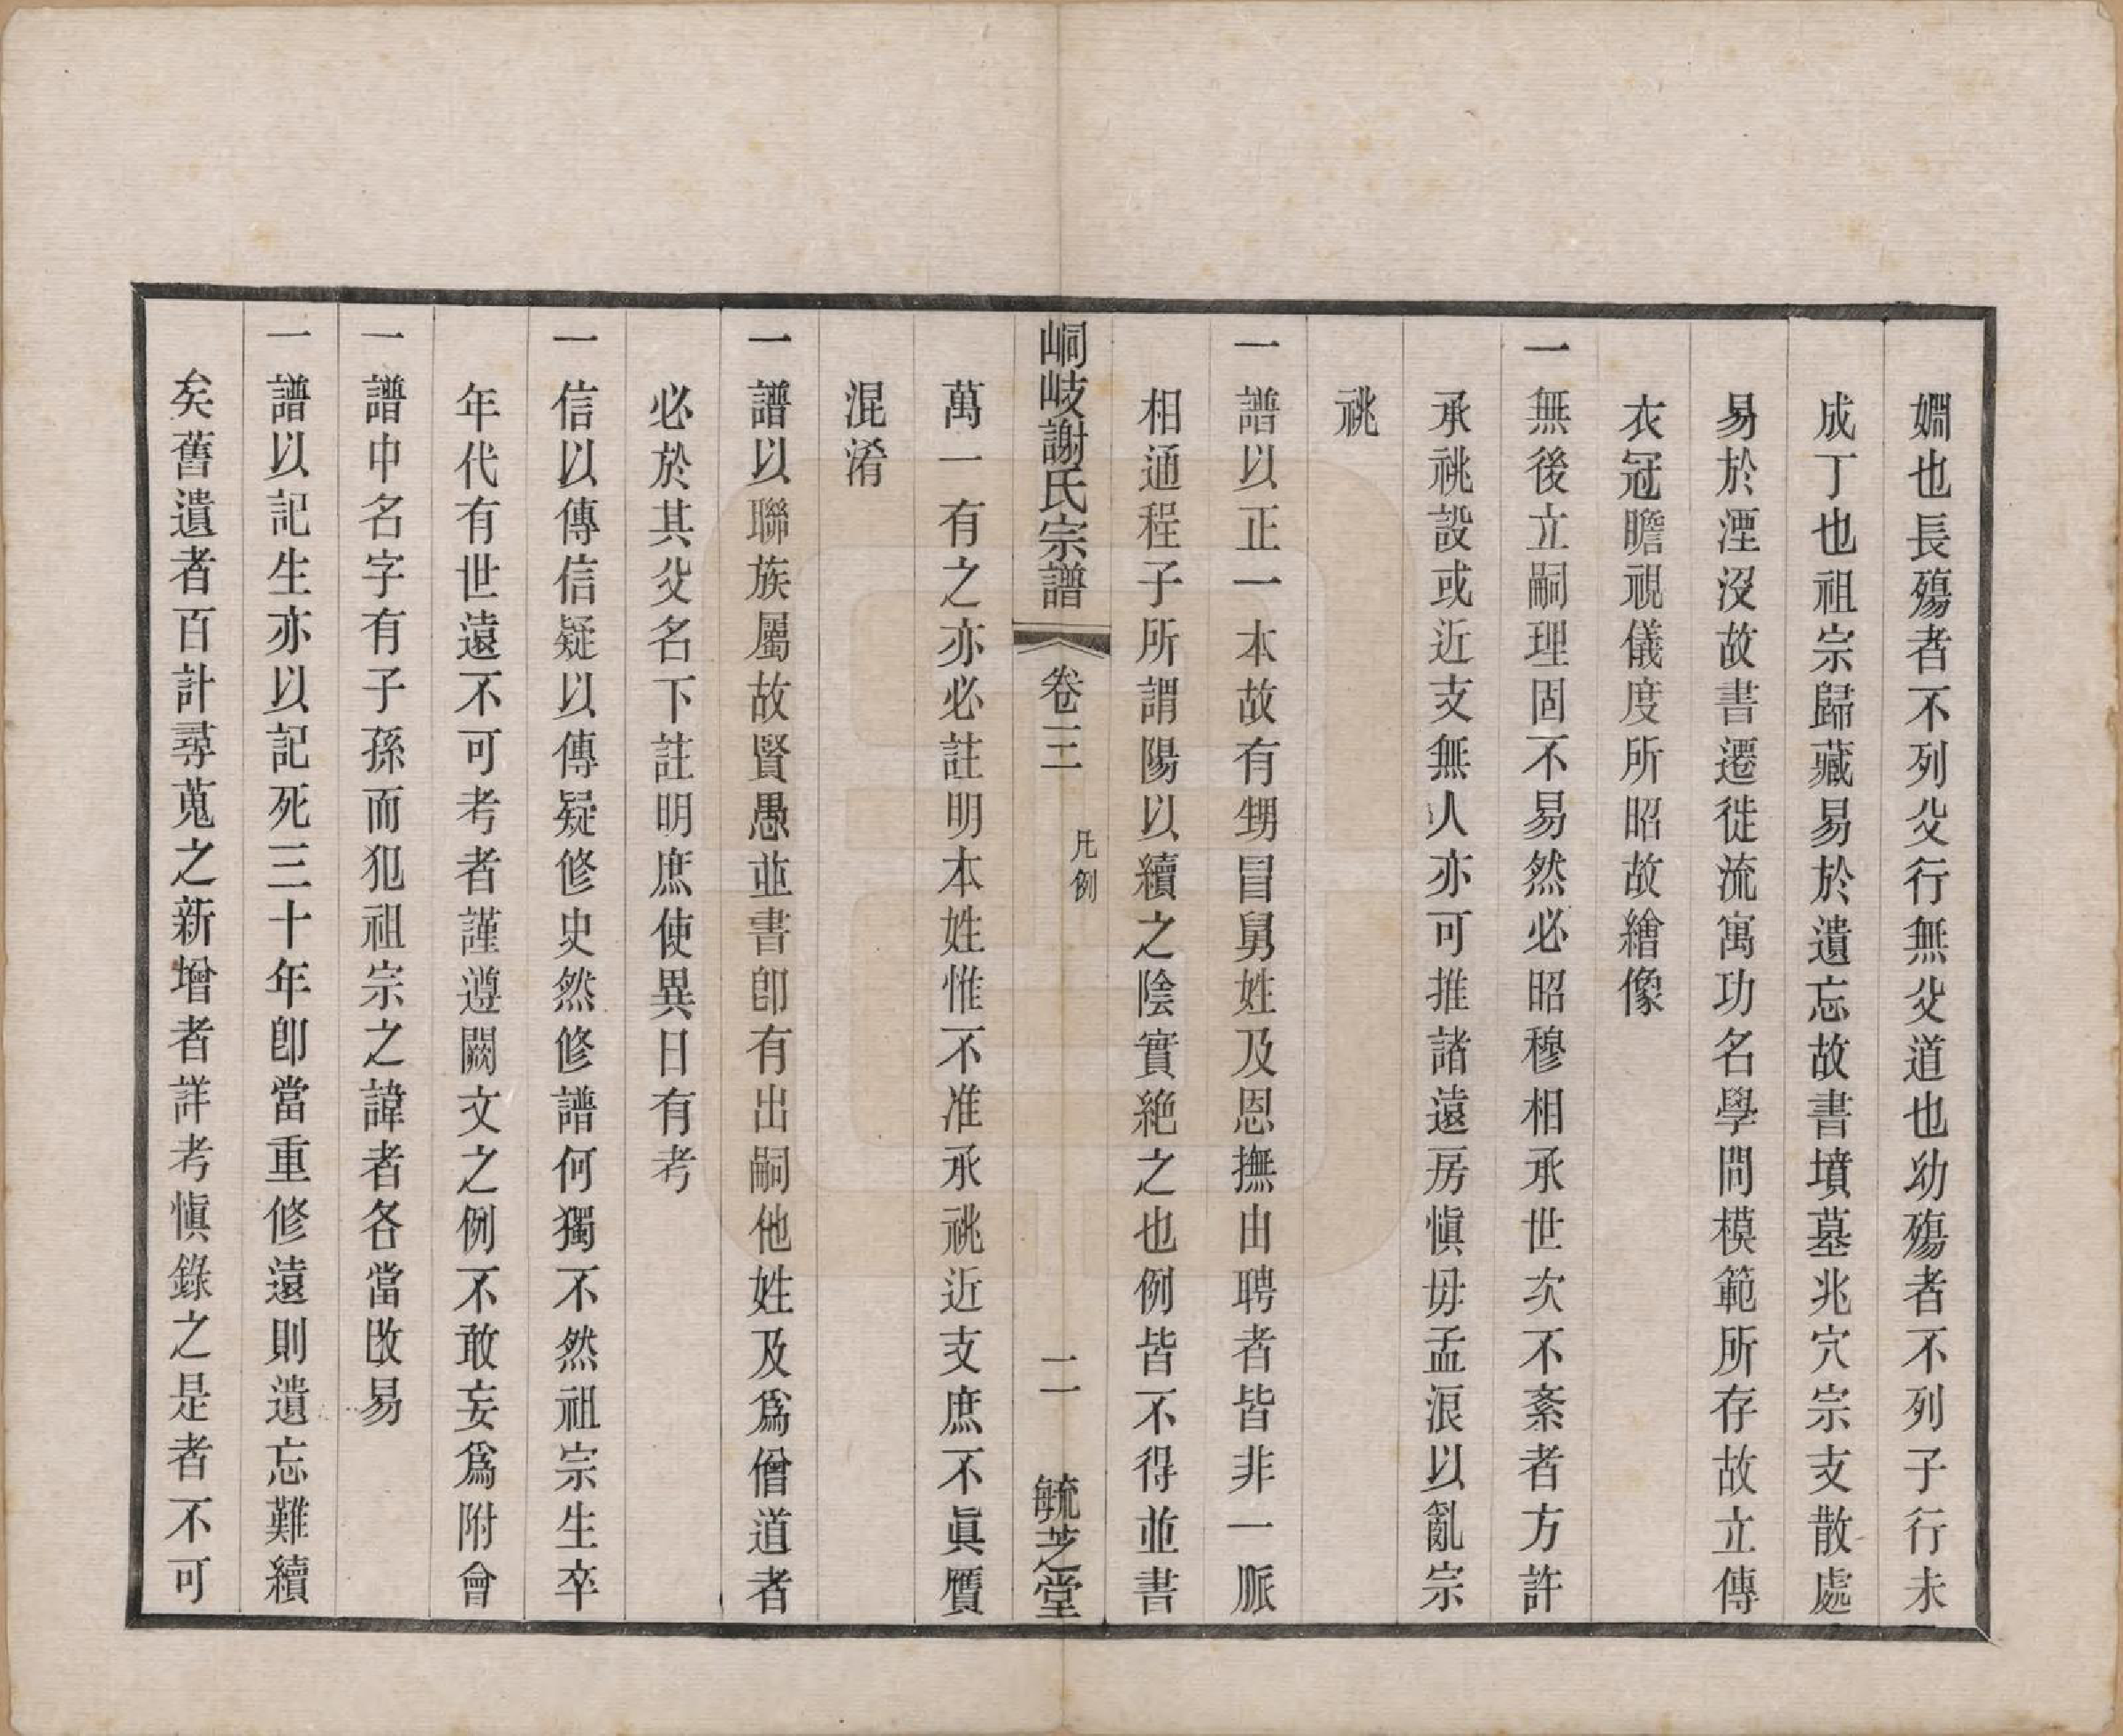 嫺也長殤者不列父行無父道也幼殤者不列子行未
成丁也祖宗歸藏易於遺忘故書墳墓兆穴宗支散處
易於湮沒故書遷徙流寓功名學問模範所存故立傳
衣冠瞻視儀度所昭故繪像
一無後立嗣理固不易然必昭穆相承世次不紊者方許
承祧設或近支無人亦可推諸遠房愼毋孟浪以亂宗
祧
一譜以正一本故有甥冒舅姓及恩撫由聘者皆非一脈
相通程子所謂陽以續之陰實絶之也例皆不得並書
峒岐謝氏宗譜 卷三 凡例 二 毓芝堂
萬一有之亦必註明本姓惟不准承祧近支庶不眞贋
混淆
一譜以聯族屬故賢愚並書卽有出嗣他姓及爲僧道者
必於其父名下註明庶使異日有考
一信以傳信疑以傳疑修史然修譜何獨不然祖宗生卒
年代有世遠不可考者謹遵闕文之例不敢妄爲附會
一譜中名字有子孫而犯祖宗之諱者各當改易
一譜以記生亦以記死三十年卽當重修遠則遺忘難續
矣舊遺者百計尋蒐之新增者詳考愼錄之是者不可